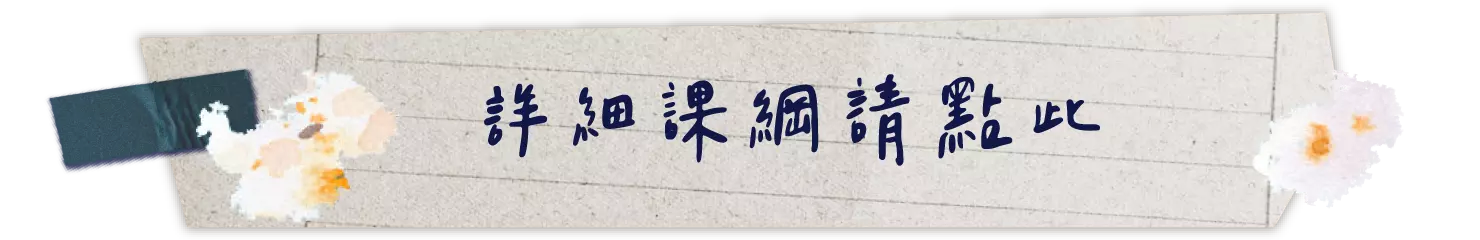 詳細課綱請點此